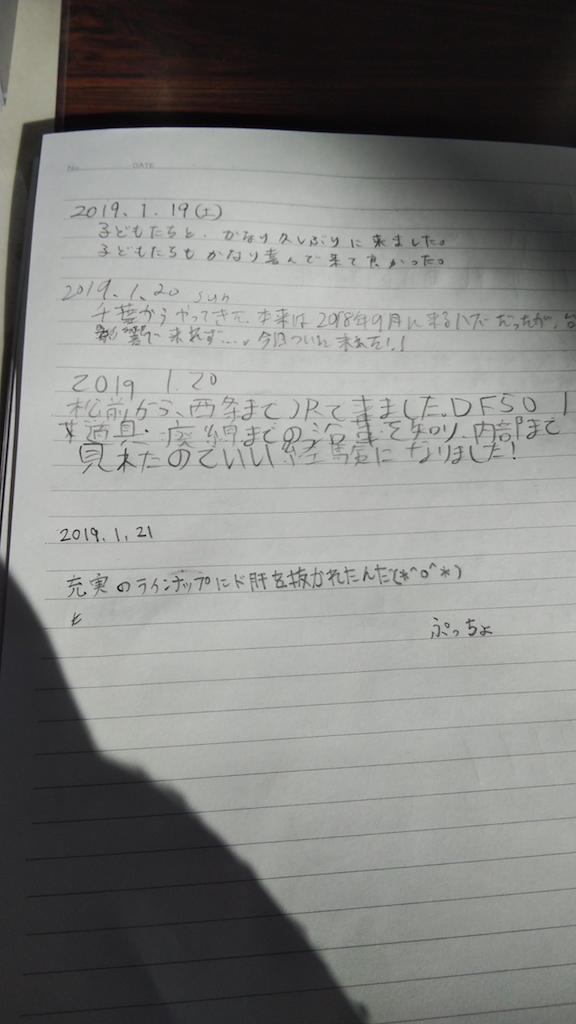 No.
DATE
2019.1.19(土)
子どもたちと、かなり久しぶりに来ました。
子どもたちもかなり喜んで来て良かった。
2019.1.20 sun
千葉からやってきた。本来は2018年9月に来るハズだったが、台
影響で来れず…。今日ついに来れた!!
2019 1.20
松前から、西条までJRで来ました。DF50 1
廃線までの沿革を知り、内部まで
見れたのでいい経験になりました!
2019.1.21
充実のラインナップにド肝を抜かれたんだ(*^o^*)
ぷっちょ